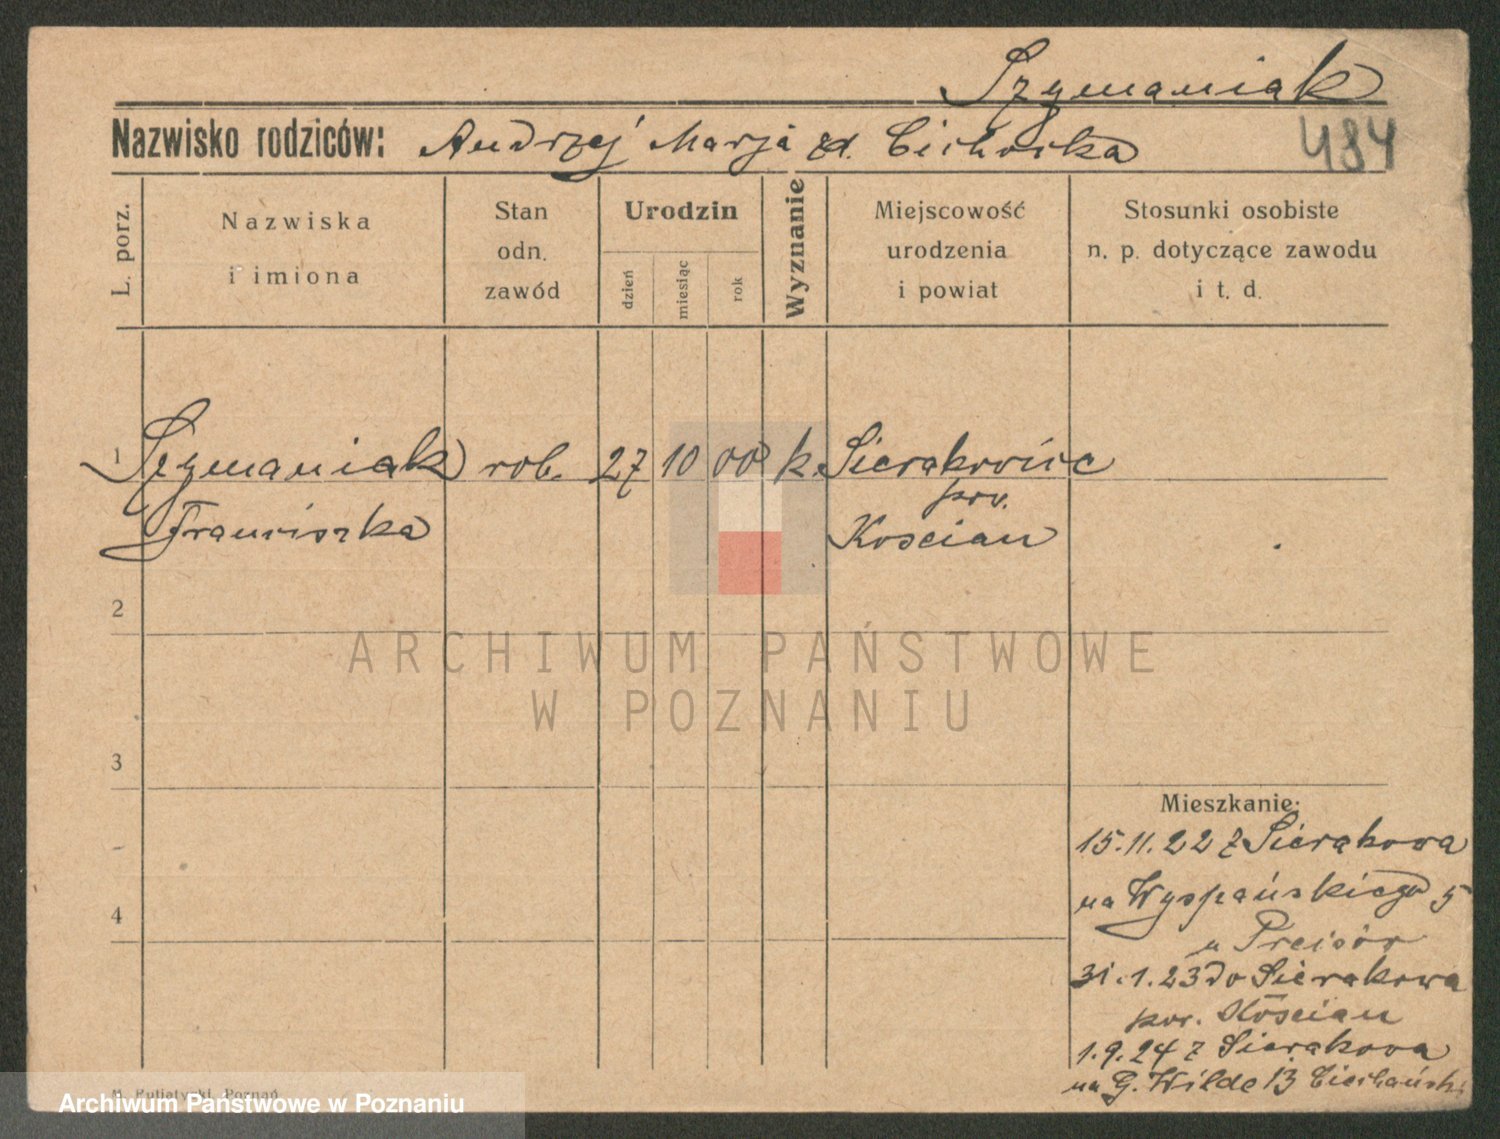 Szymaniak
Nazwisko rodziców: Andrzej Marja zd. Cichocka
484
L. porz.
Nazwiska
i imiona
Stan
odn.
zawód
Urodzin
dzień
miesiąc
rok
Wyznanie
Miejscowość
urodzenia
i powiat
Stosunki osobiste
n. p. dotyczące zawodu
i t. d.
1 Szymaniak rob. 27 10 00 k. Sierakowice
pow.
Franciszka Koscian
2
ARCHIWUM PAŃSTWOWE
W POZNANIU
3
Mieszkanie:
15.11.22 z Sierakowa
4
na Wyspańskiego 5
u Preisór
31.1.23 do Sierakowa
pow. Kościan
1.9.24 z Sierakowa
na G. Wilde 13
M. Putiatycki, Poznań
Archiwum Państwowe w Poznaniu